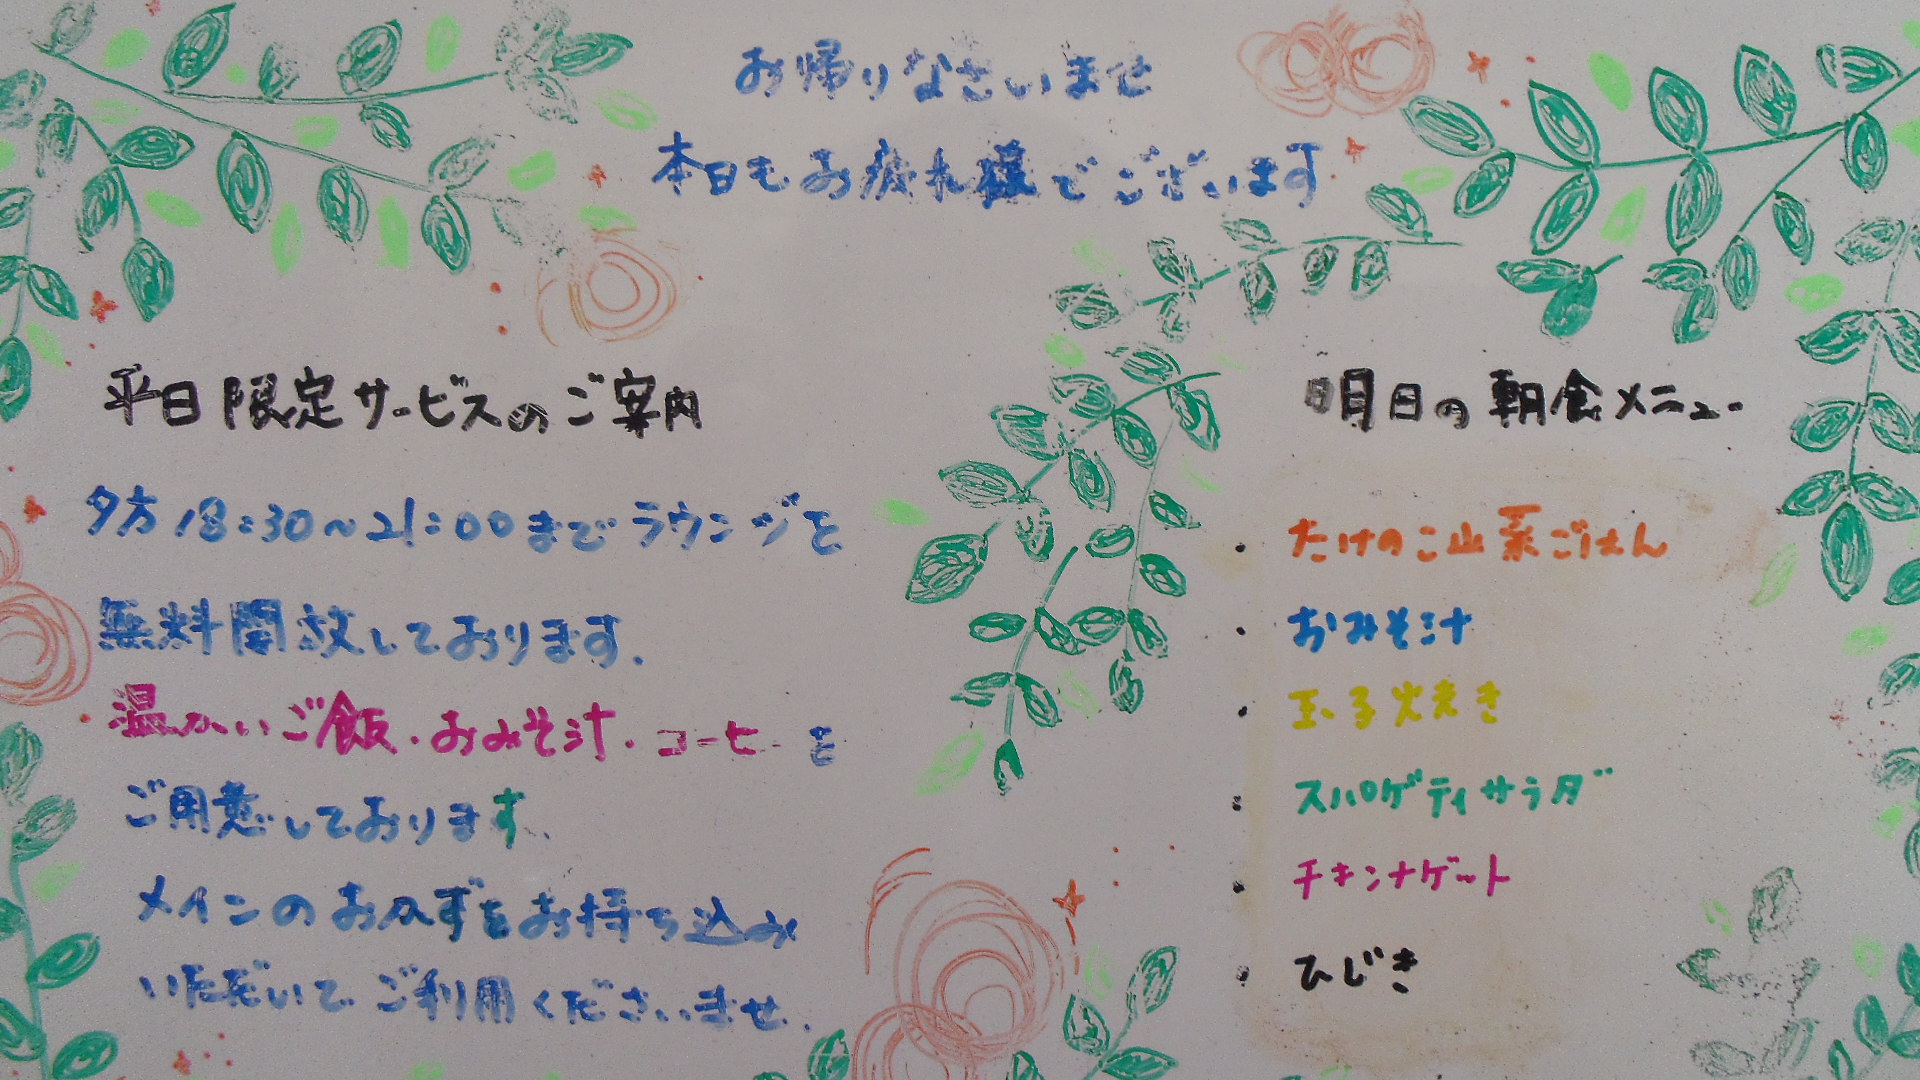 お帰りなさいませ
本日もお疲れ様でございます
平日限定サービスのご案内
夕方18:30~21:00までラウンジを
無料開放しております.
温かいご飯・おみそ汁・コーヒーを
ご用意しております、
メインのおかずをお持ち込み
いただいてご利用くださいませ.
明日の朝食メニュー
・たけのこ山菜ごはん
・おみそ汁
・玉子焼き
・スパゲティサラダ
・チキンナゲット
・ひじき